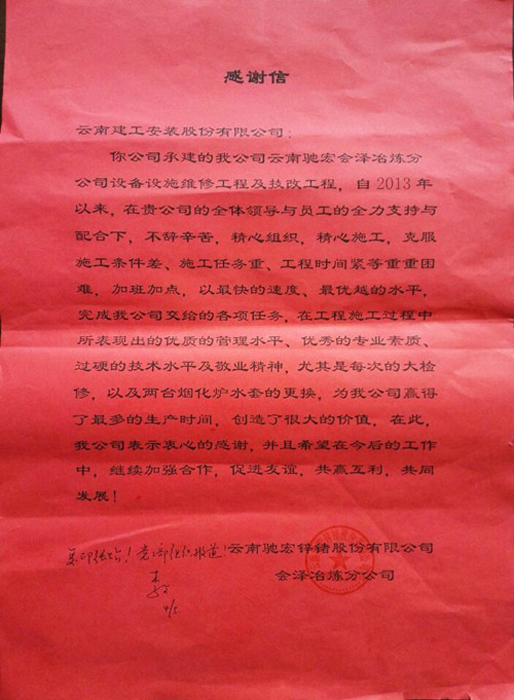 感谢信
云南建工安装股份有限公司：
你公司承建的我公司云南驰宏会泽冶炼分
公司设备设施维修工程及技改工程，自2013年
以来，在贵公司的全体领导与员工的全力支持与
配合下，不辞辛苦，精心组织，精心施工，克服
施工条件差、施工任务重、工程时间紧等重重困
难，加班加点，以最快的速度、最优越的水平，
完成我公司交给的各项任务，在工程施工过程中
所表现出的优质的管理水平、优秀的专业素质、
过硬的技术水平及敬业精神，尤其是每次的大检
修，以及两台烟化炉水套的更换，为我公司赢得
了最多的生产时间，创造了很大的价值，在此，
我公司表示衷心的感谢，并且希望在今后的工作
中，继续加强合作，促进友谊，共赢互利，共同
发展！
云南驰宏锌锗股份有限公司
会泽冶炼分公司